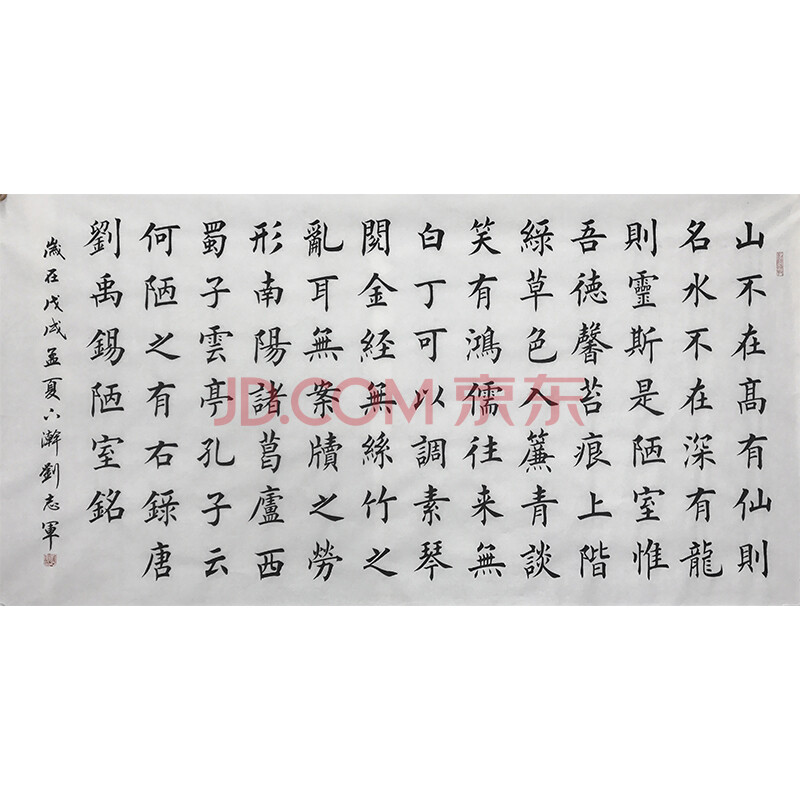 山不在髙有仙則
名水不在深有龍
則靈斯是陋室惟
吾徳馨苔痕上階
綠草色入簾青談
笑有鴻儒往来無
白丁可以調素琴
閱金経無絲竹之
亂耳無案牘之勞
形南陽諸葛廬西
蜀子雲亭孔子云
何陋之有右録唐
劉禹錫陋室銘
歲在戊戌孟夏六瀚劉志軍
JD.COM 京东